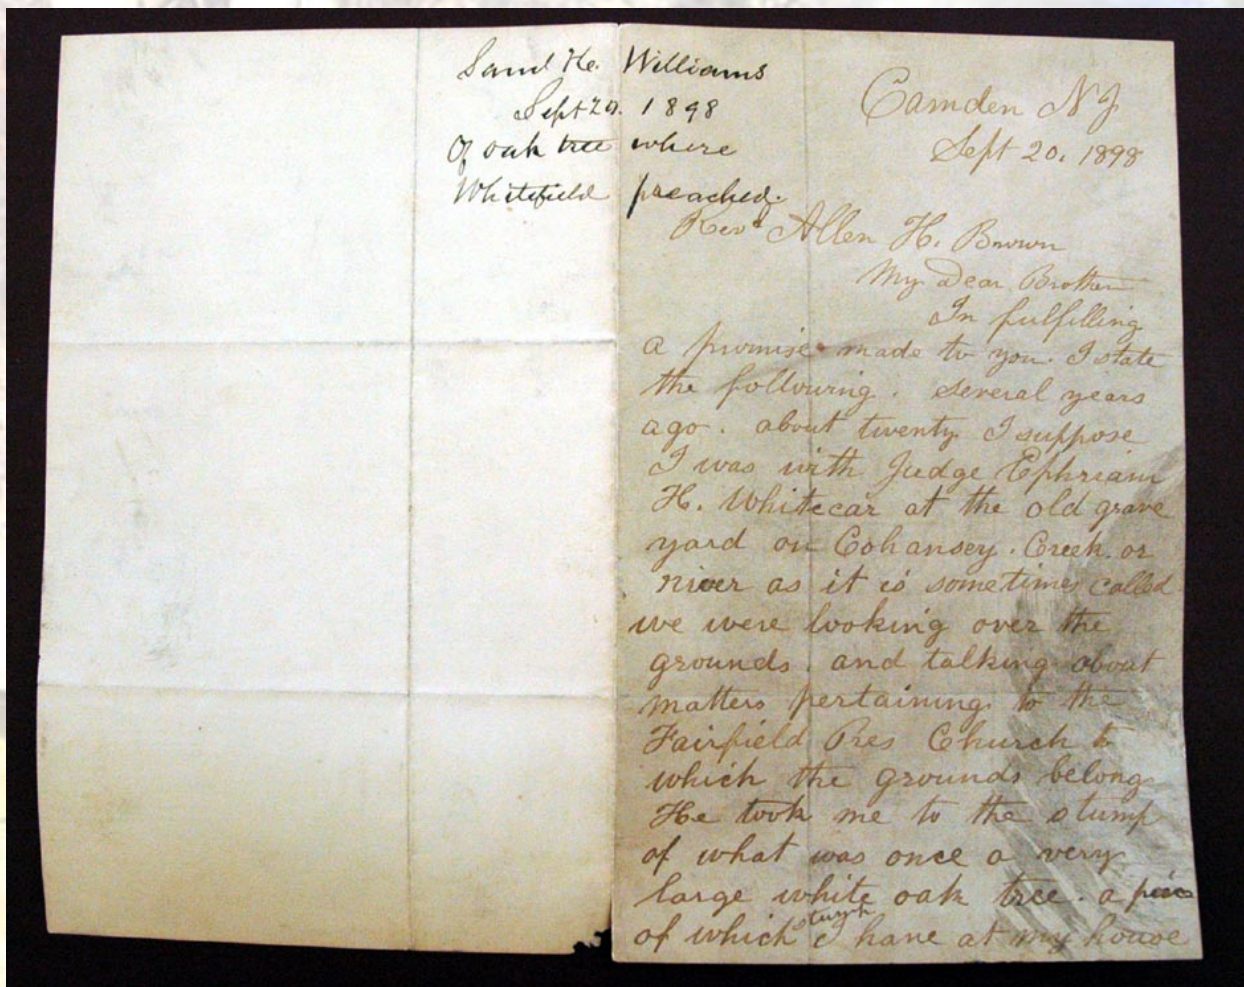 Saml H. Williams
Sept 20. 1898
Of oak tree where
Whitefield preached.
Camden NJ
Sept 20. 1898
Revd Allen H. Brown
My Dear Brother
In fulfilling
a promise made to you. I state
the following. Several years
ago. about twenty I suppose
I was with Judge Ephriam
H. Whitecar at the old grave
yard on Cohansey. Creek. or
river as it is sometimes called
we were looking over the
grounds. and talking about
matters pertaining to the
Fairfield Pres Church to
which the grounds belong
He took me to the stump
of what was once a very
large white oak tree. a piece
of which stump I have at my house